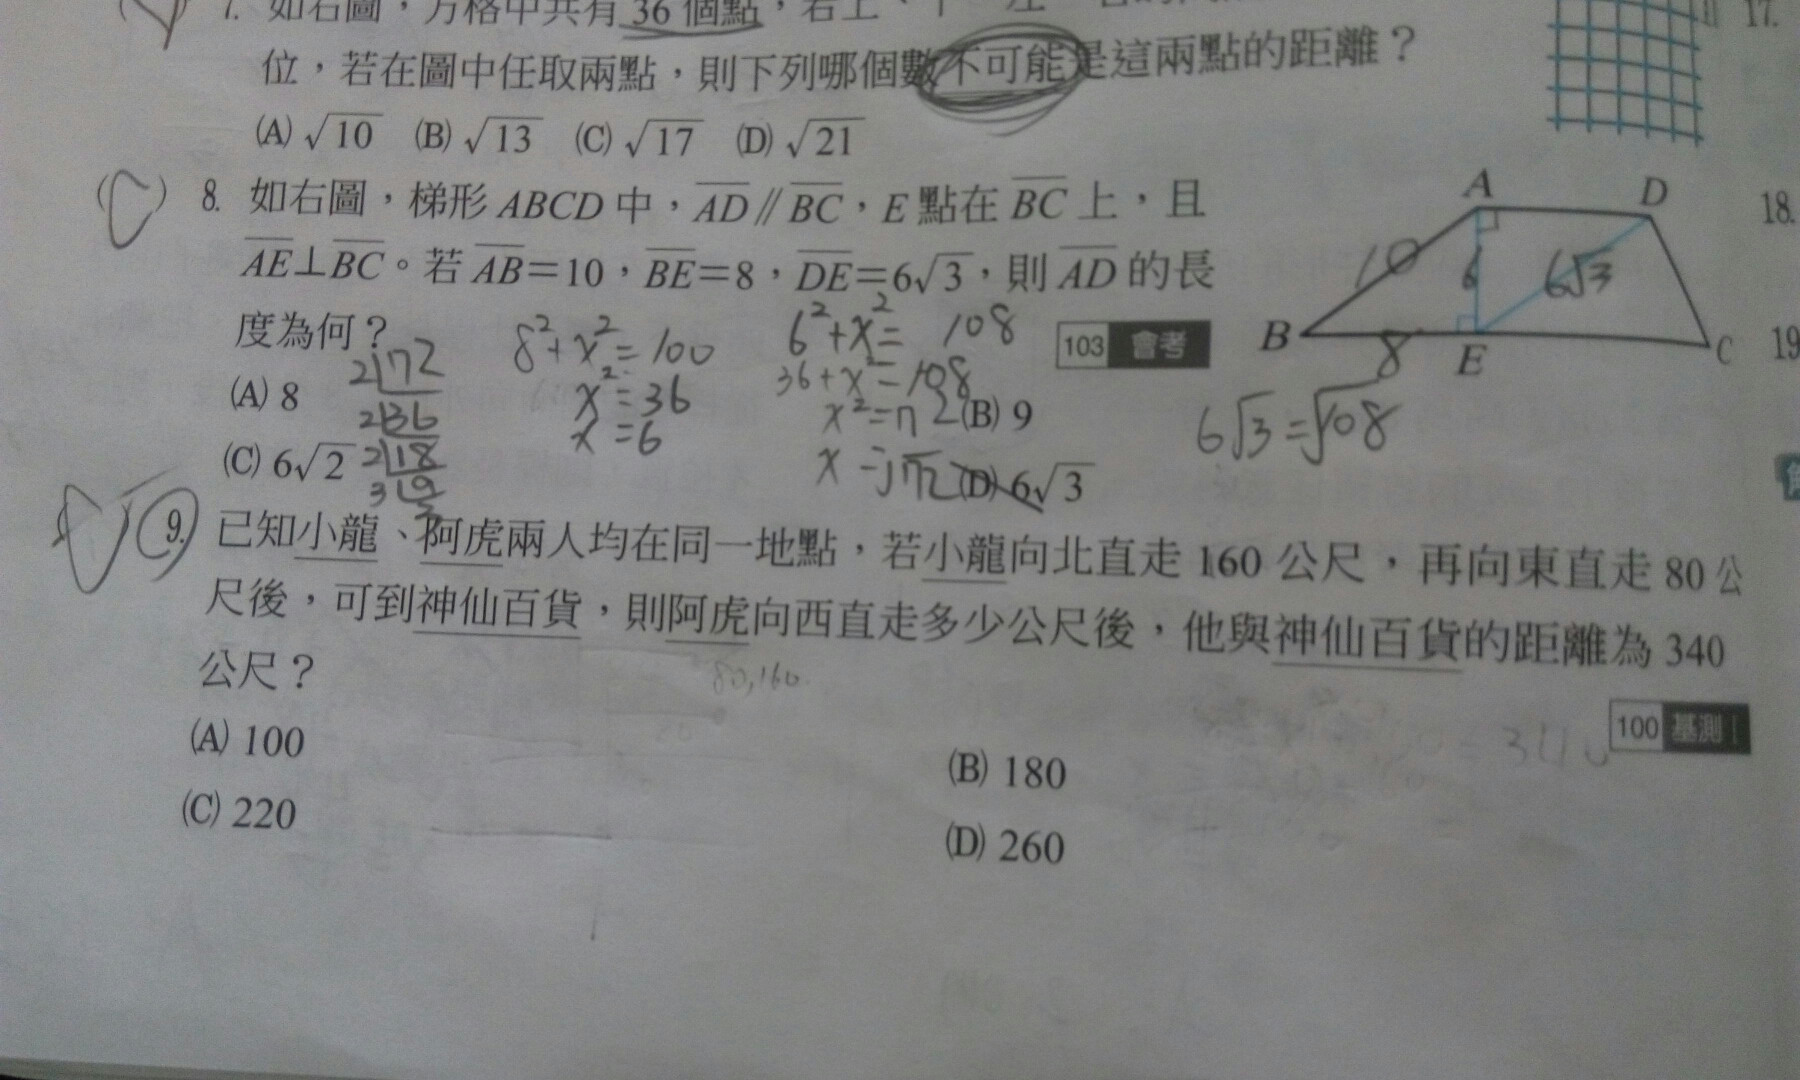 7. 如右圖，方格中共有 36 個點，若上、
位，若在圖中任取兩點，則下列哪個數不可能是這兩點的距離？
17.
(A) √10 (B) √13 (C) √17 (D) √21
(C) 8. 如右圖，梯形 ABCD 中，AD // BC，E 點在 BC 上，且
AE⊥BC。若 AB＝10，BE＝8，DE＝6√3，則 AD 的長
度為何？
103 會考
A D
10 6 6√3
B 8 E C
18.
19
2|72
2|36
2|18
3|9
3
8²+x²=100
x²=36
x=6
6²+x²=108
36+x²=108
x²=72
x=√72
6√3=√108
(A) 8 (B) 9
(C) 6√2 (D) 6√3
9. 已知小龍、阿虎兩人均在同一地點，若小龍向北直走 160 公尺，再向東直走 80 公
尺後，可到神仙百貨，則阿虎向西直走多少公尺後，他與神仙百貨的距離為 340
公尺？
80,160
100 基測 I
(A) 100 (B) 180
(C) 220 (D) 260